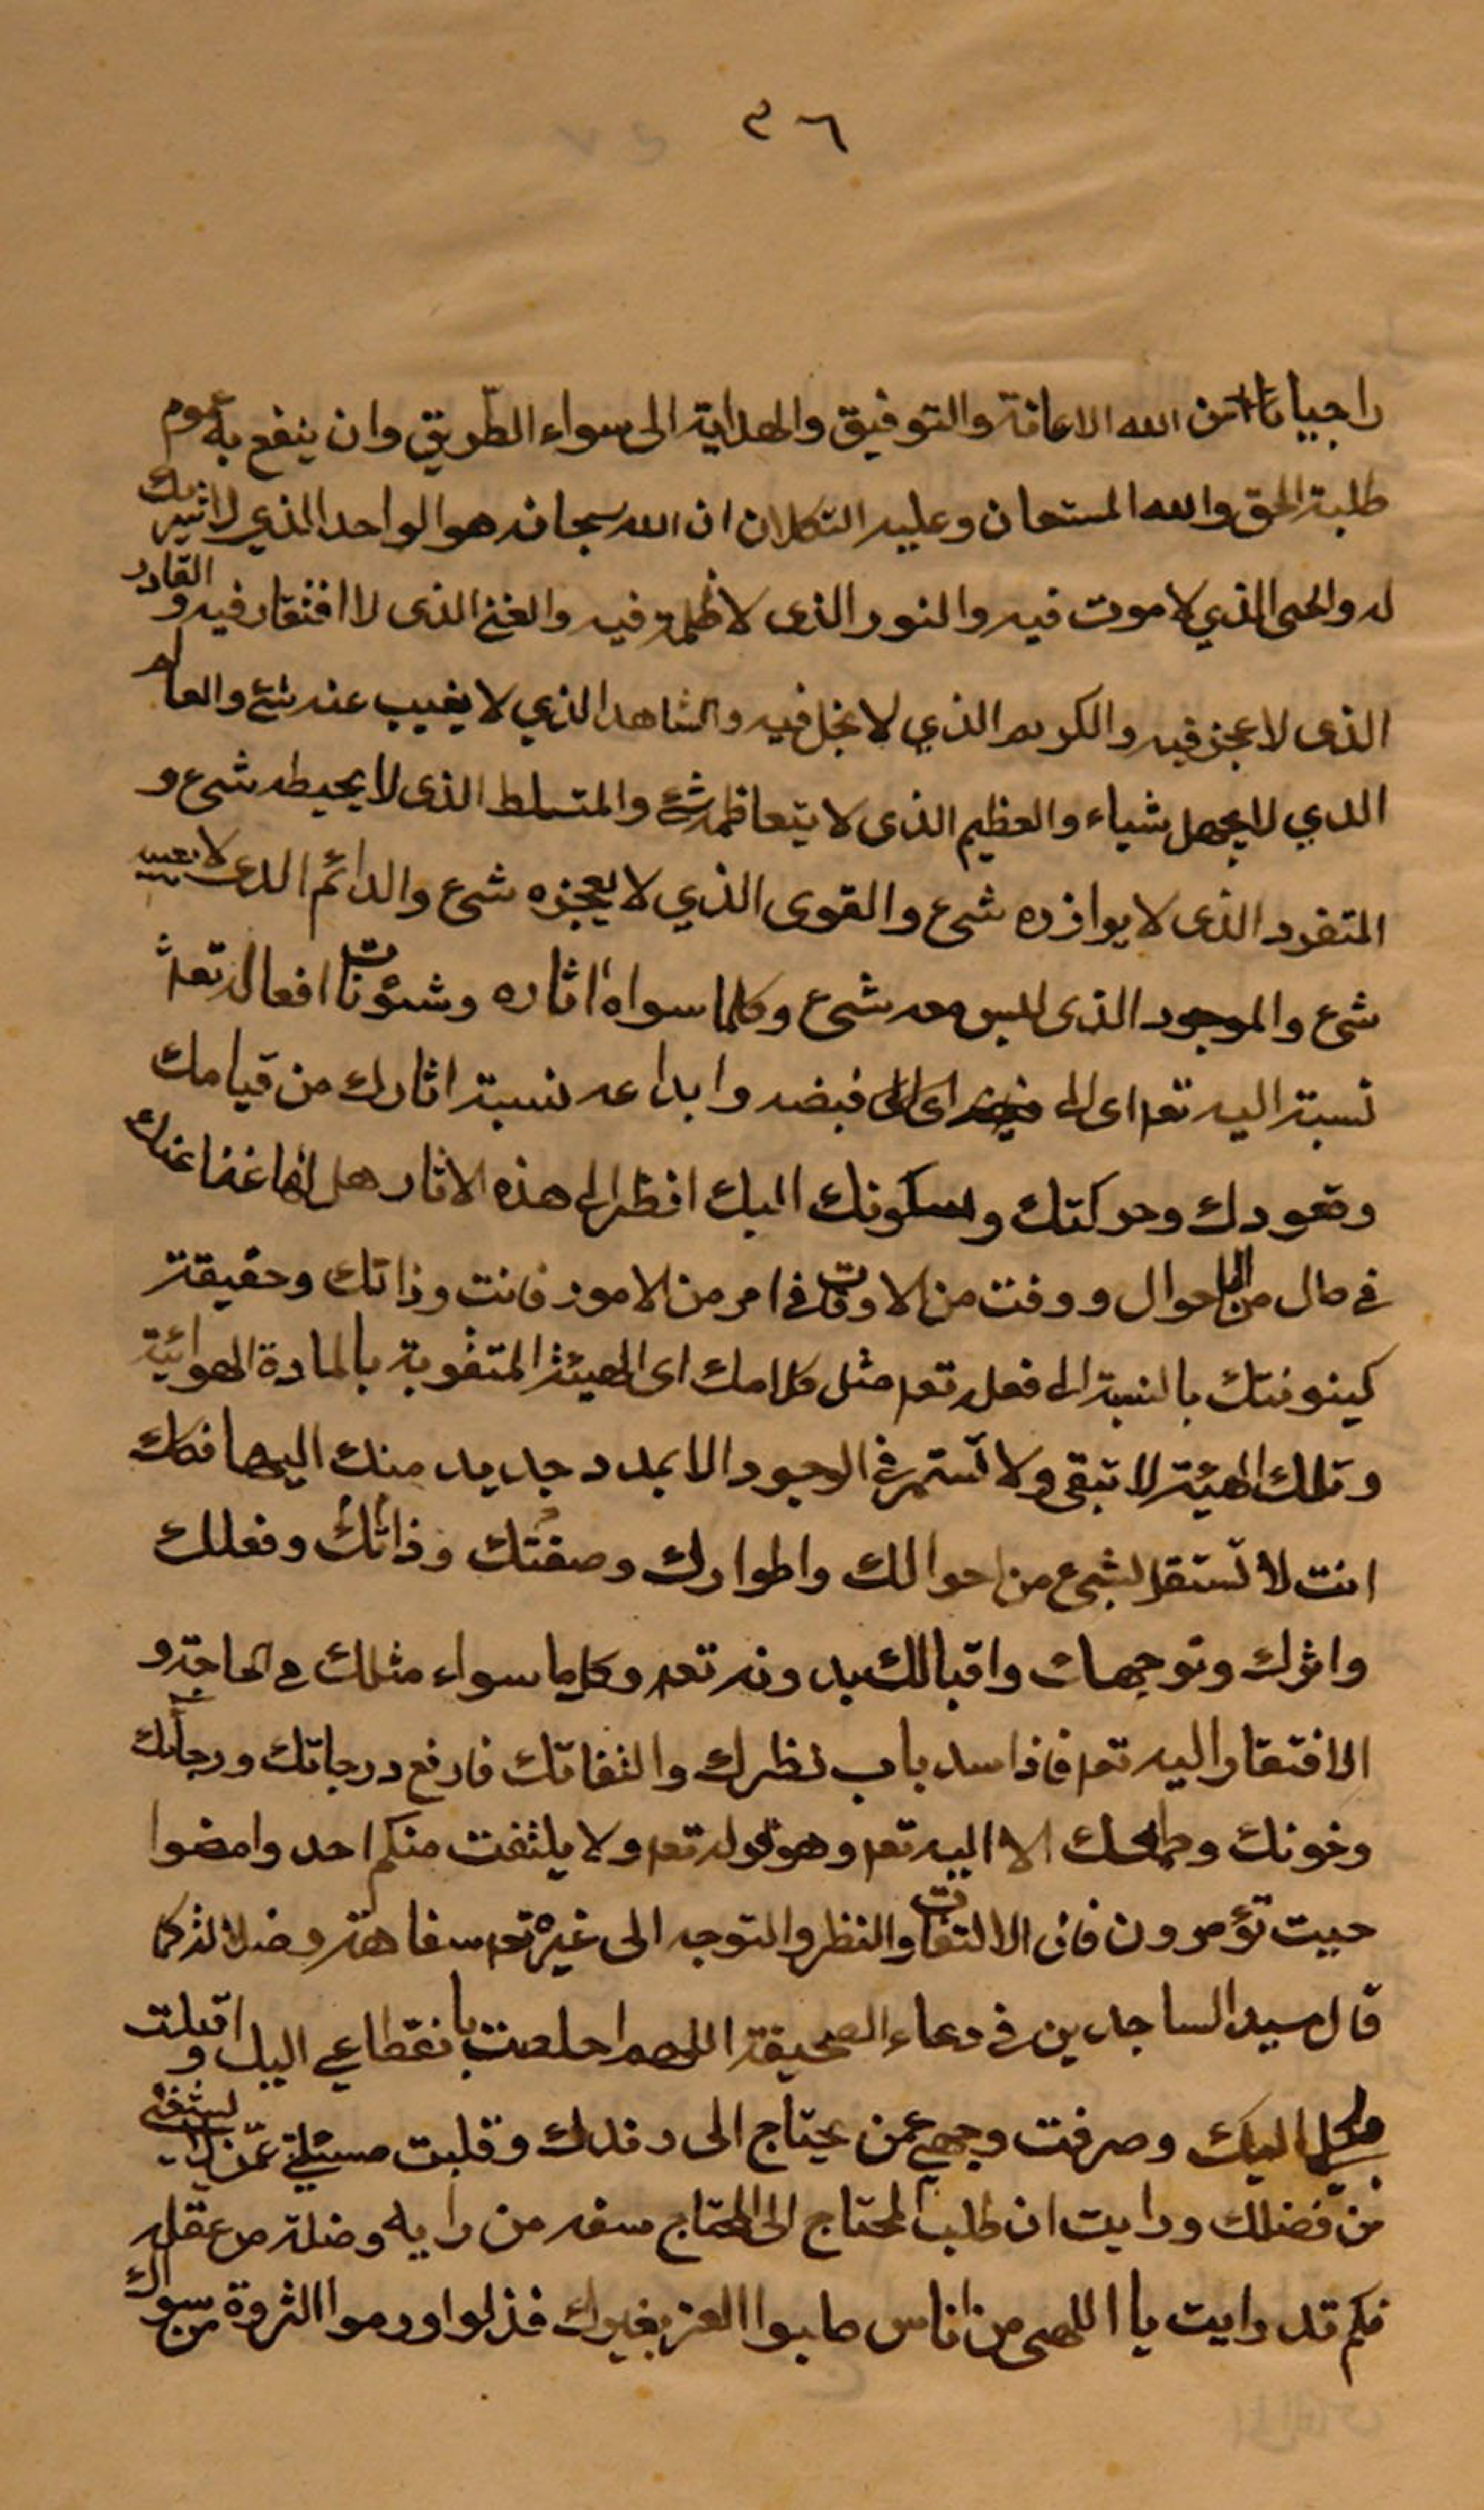 ٣٦
راجيا منا من الله الاعانة والتوفيق والهداية الى سواء الطّريق وان ينفع به عموم
طلبة الحق والله المستعان وعليه التكلان ان الله سبحانه هو الواحد الذي لا شريك
له والحى الذي لا موت فيه والنور الذى لا ظلمة فيه والغنى الذى لا افتقار فيه والقادر
الذى لا عجز فيه والكريم الذي لا بخل فيه والشاهد الذي لا يغيب عنه شئ والعالم
الدي لا يجهل شياء والعظيم الذى لا يتعاظمه شئ والمتسلط الذى لا يحيطه شئ و
المتفرد الذى لا يوازره شئ والقوى الذي لا يعجزه شئ والدائم الدى لا يغيبه
شئ والموجود الذى ليس معه شئ وكلما سواه اثاره وشئونات افعاله تعم
نسبة اليه تعم اى الى فيضه وابداعه نسبة اثارك من قيامك
وقعودك وحركتك وسكونك اليك انظر الى هذه الاثار هل لها غناء عنك
فى حال من الاحوال ووقت من الاوقات فى امر من الامور فانت وذاتك وحقيقة
كينونتك بالنسبة الى فعله تعم مثل كلامك اى الهيئة المتقومة بالمادة الهوائية
وتلك الهيئة لا تبقى ولا تستمر فى الوجود الا بمدد جديد منك اليها فكك
انت لا تستقل بشئ من احوالك واطوارك وصفتك وذاتك وفعلك
واثرك وتوجهك واقبالك بدونه تعم وكلما سواء مثلك فى الحاجة و
الافتقار اليه تعم فاذا سد باب نظرك والتفاتك فارفع درجاتك ورجائك
وخوفك وطمعك الا اليه تعم وهو قوله تعم ولا يلتفت منكم احد وامضوا
حيت تؤمرون فان الالتفات والنظر والتوجه الى غيره تعم سفاهة وضلالة كما
قال سيد الساجدين فى دعاء الصحيفة اللهم اخلصت بانقطاعي اليك واقبلت
بكلى اليك وصرفت وجهي عمن يحتاج الى رفدك وقلبت مسئلتي عمّن لم يستغن
من فضلك ورايت ان طلب المحتاج الى المحتاج سفه من رايه وضلة من عقله
فكم قد رايت يا اللهى من اناس طلبوا العز بغيرك فذلوا وراموا الثروة من سواك